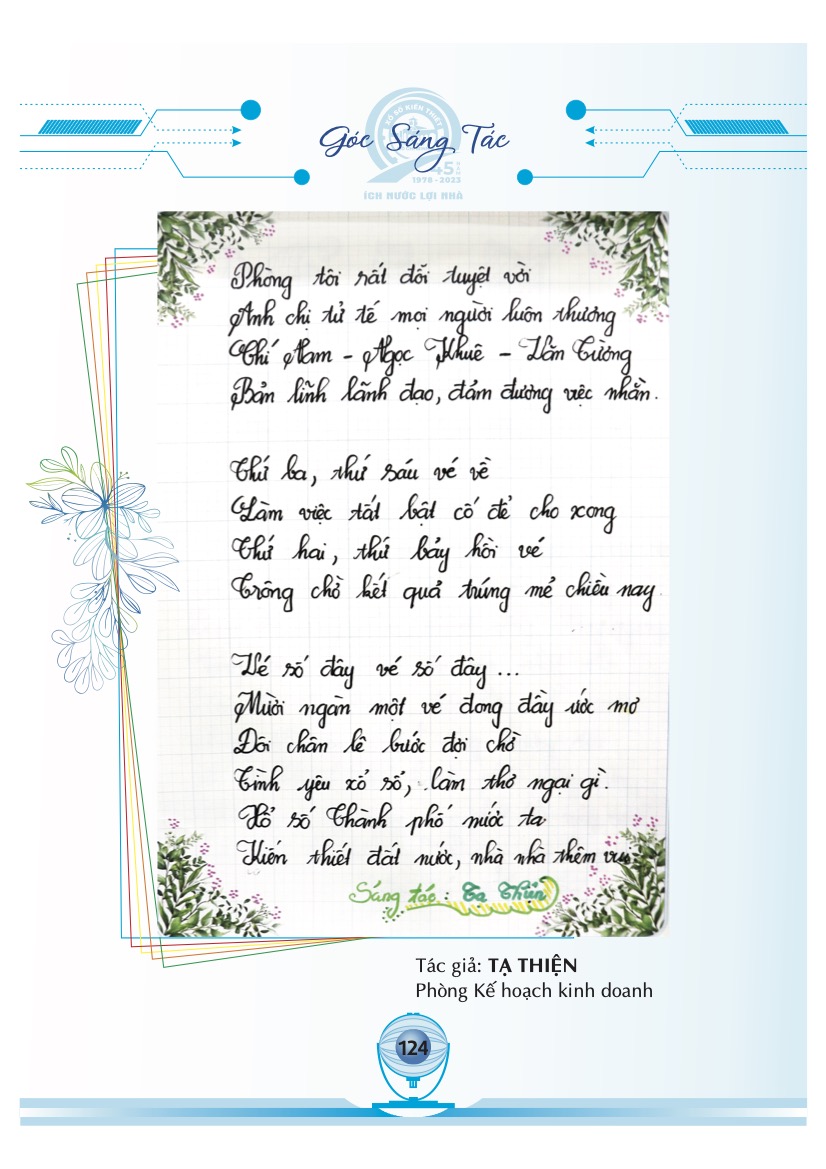 XỔ SỐ KIẾN THIẾT
Góc Sáng Tác
45 NĂM
1978 - 2023
ÍCH NƯỚC LỢI NHÀ
Phòng tôi rất đỗi tuyệt vời
Anh chị tử tế mọi người luôn thương
Chí Nam - Ngọc Khuê - Văn Cường
Bản lĩnh lãnh đạo, đảm đương việc nhằn.
Thứ ba, thứ sáu vé về
Làm việc tất bật cố để cho xong
Thứ hai, thứ bảy hồi vé
Trông chờ kết quả trúng mẻ chiều nay
Vé số đây vé số đây ...
Mười ngàn một vé đong đầy ước mơ
Đôi chân lê bước đợi chờ
Tình yêu xổ số, làm thơ ngại gì.
Xổ số Thành phố nước ta
Kiến thiết đất nước, nhà nhà thêm vui
Sáng tác: Tạ Thiện
Tác giả: TẠ THIỆN
Phòng Kế hoạch kinh doanh
124